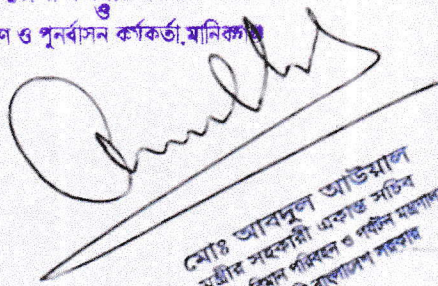 ও
ণ ও পুনর্বাসন কর্মকর্তা, মানিকগঞ্জ
মোঃ আবদুল আউয়াল
মন্ত্রীর সহকারী একান্ত সচিব
বিমান পরিবহন ও পর্যটন মন্ত্রণালয়
বাংলাদেশ সরকার